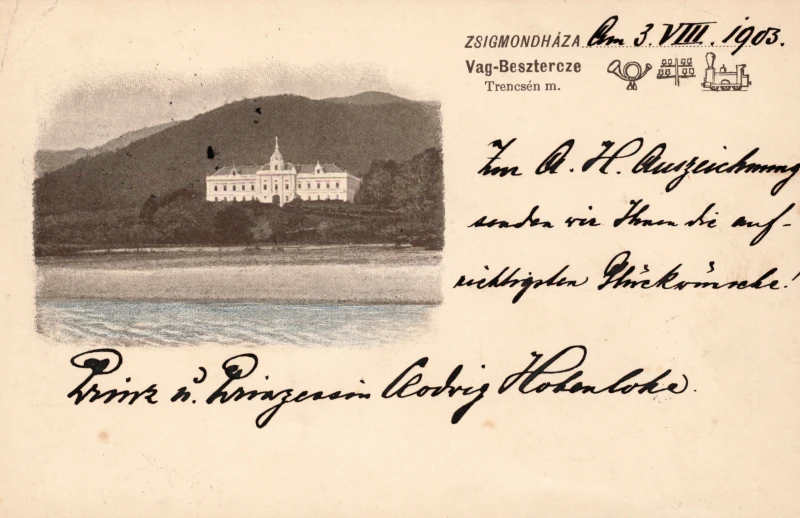 ZSIGMONDHÁZA Am 3. VIII. 1903.
Vag-Besztercze
Trencsén m.
Zur A. H. Auszeichnung
senden wir Ihnen die auf-
richtigsten Glückwünsche!
Prinz u. Prinzessin Clodwig Hohenlohe.